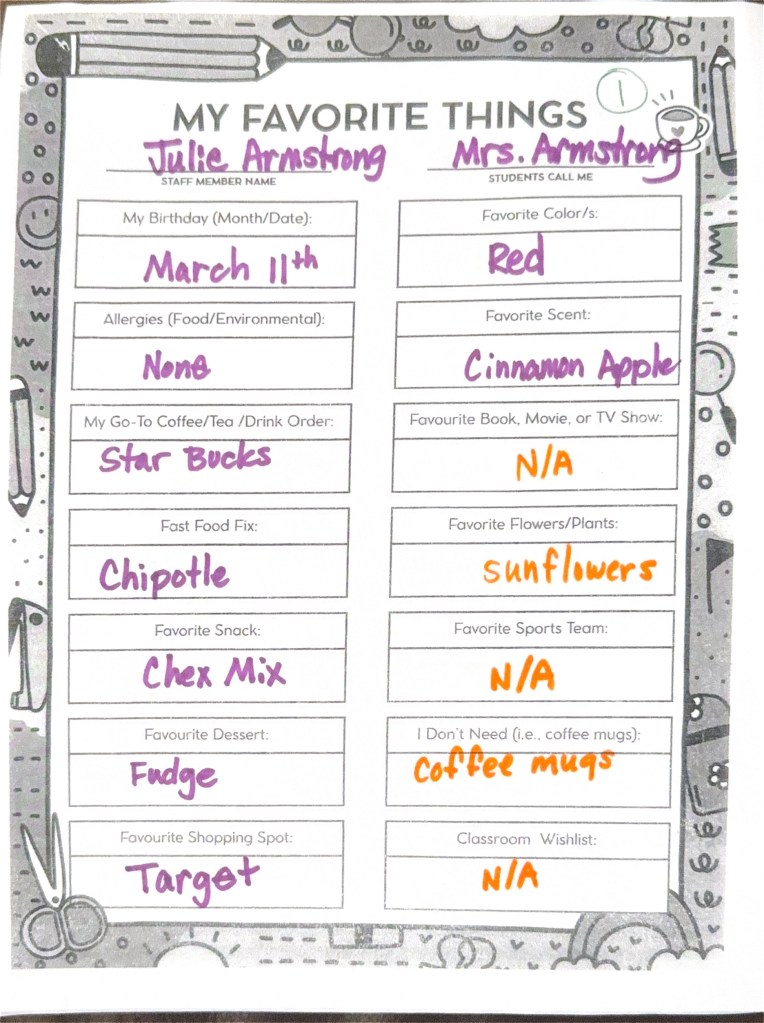 1
MY FAVORITE THINGS
Julie Armstrong
STAFF MEMBER NAME
Mrs. Armstrong
STUDENTS CALL ME
My Birthday (Month/Date):
March 11th
Favorite Color/s:
Red
Allergies (Food/Environmental):
None
Favorite Scent:
Cinnamon Apple
My Go-To Coffee/Tea /Drink Order:
Star Bucks
Favourite Book, Movie, or TV Show:
N/A
Fast Food Fix:
Chipotle
Favorite Flowers/Plants:
sunflowers
Favorite Snack:
Chex Mix
Favorite Sports Team:
N/A
Favourite Dessert:
Fudge
I Don't Need (i.e., coffee mugs):
coffee mugs
Favourite Shopping Spot:
Target
Classroom Wishlist:
N/A